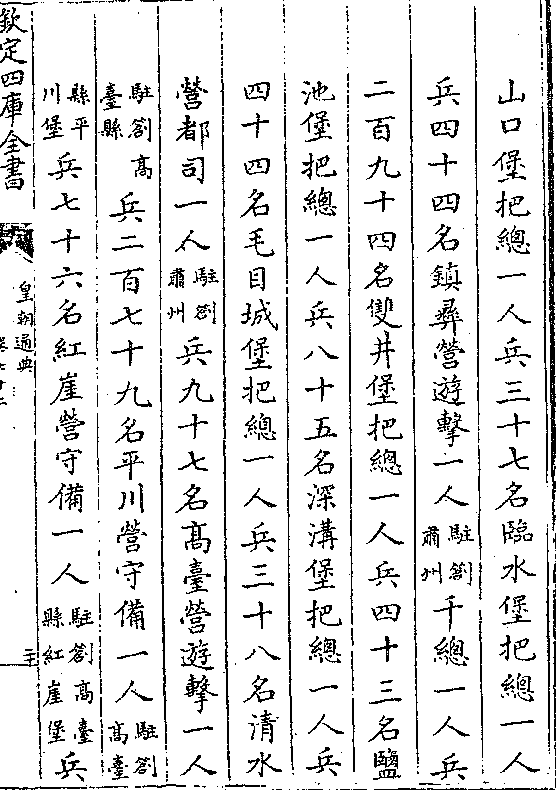 山口堡把總一人兵三十七名臨水堡把總一人
兵四十四名鎮彛營遊擊一人駐劄肅州千總一人兵
二百九十四名雙井堡把總一人兵四十三名鹽
池堡把總一人兵八十五名深溝堡把總一人兵
四十四名毛目城堡把總一人兵三十八名清水
營都司一人駐劄肅州兵九十七名髙臺營遊擊一人
駐劄髙臺縣兵二百七十九名平川營守備一人駐劄髙臺
縣平川堡兵七十六名紅崖營守備一人駐劄髙臺縣紅崖堡兵
欽定四庫全書
皇朝通典